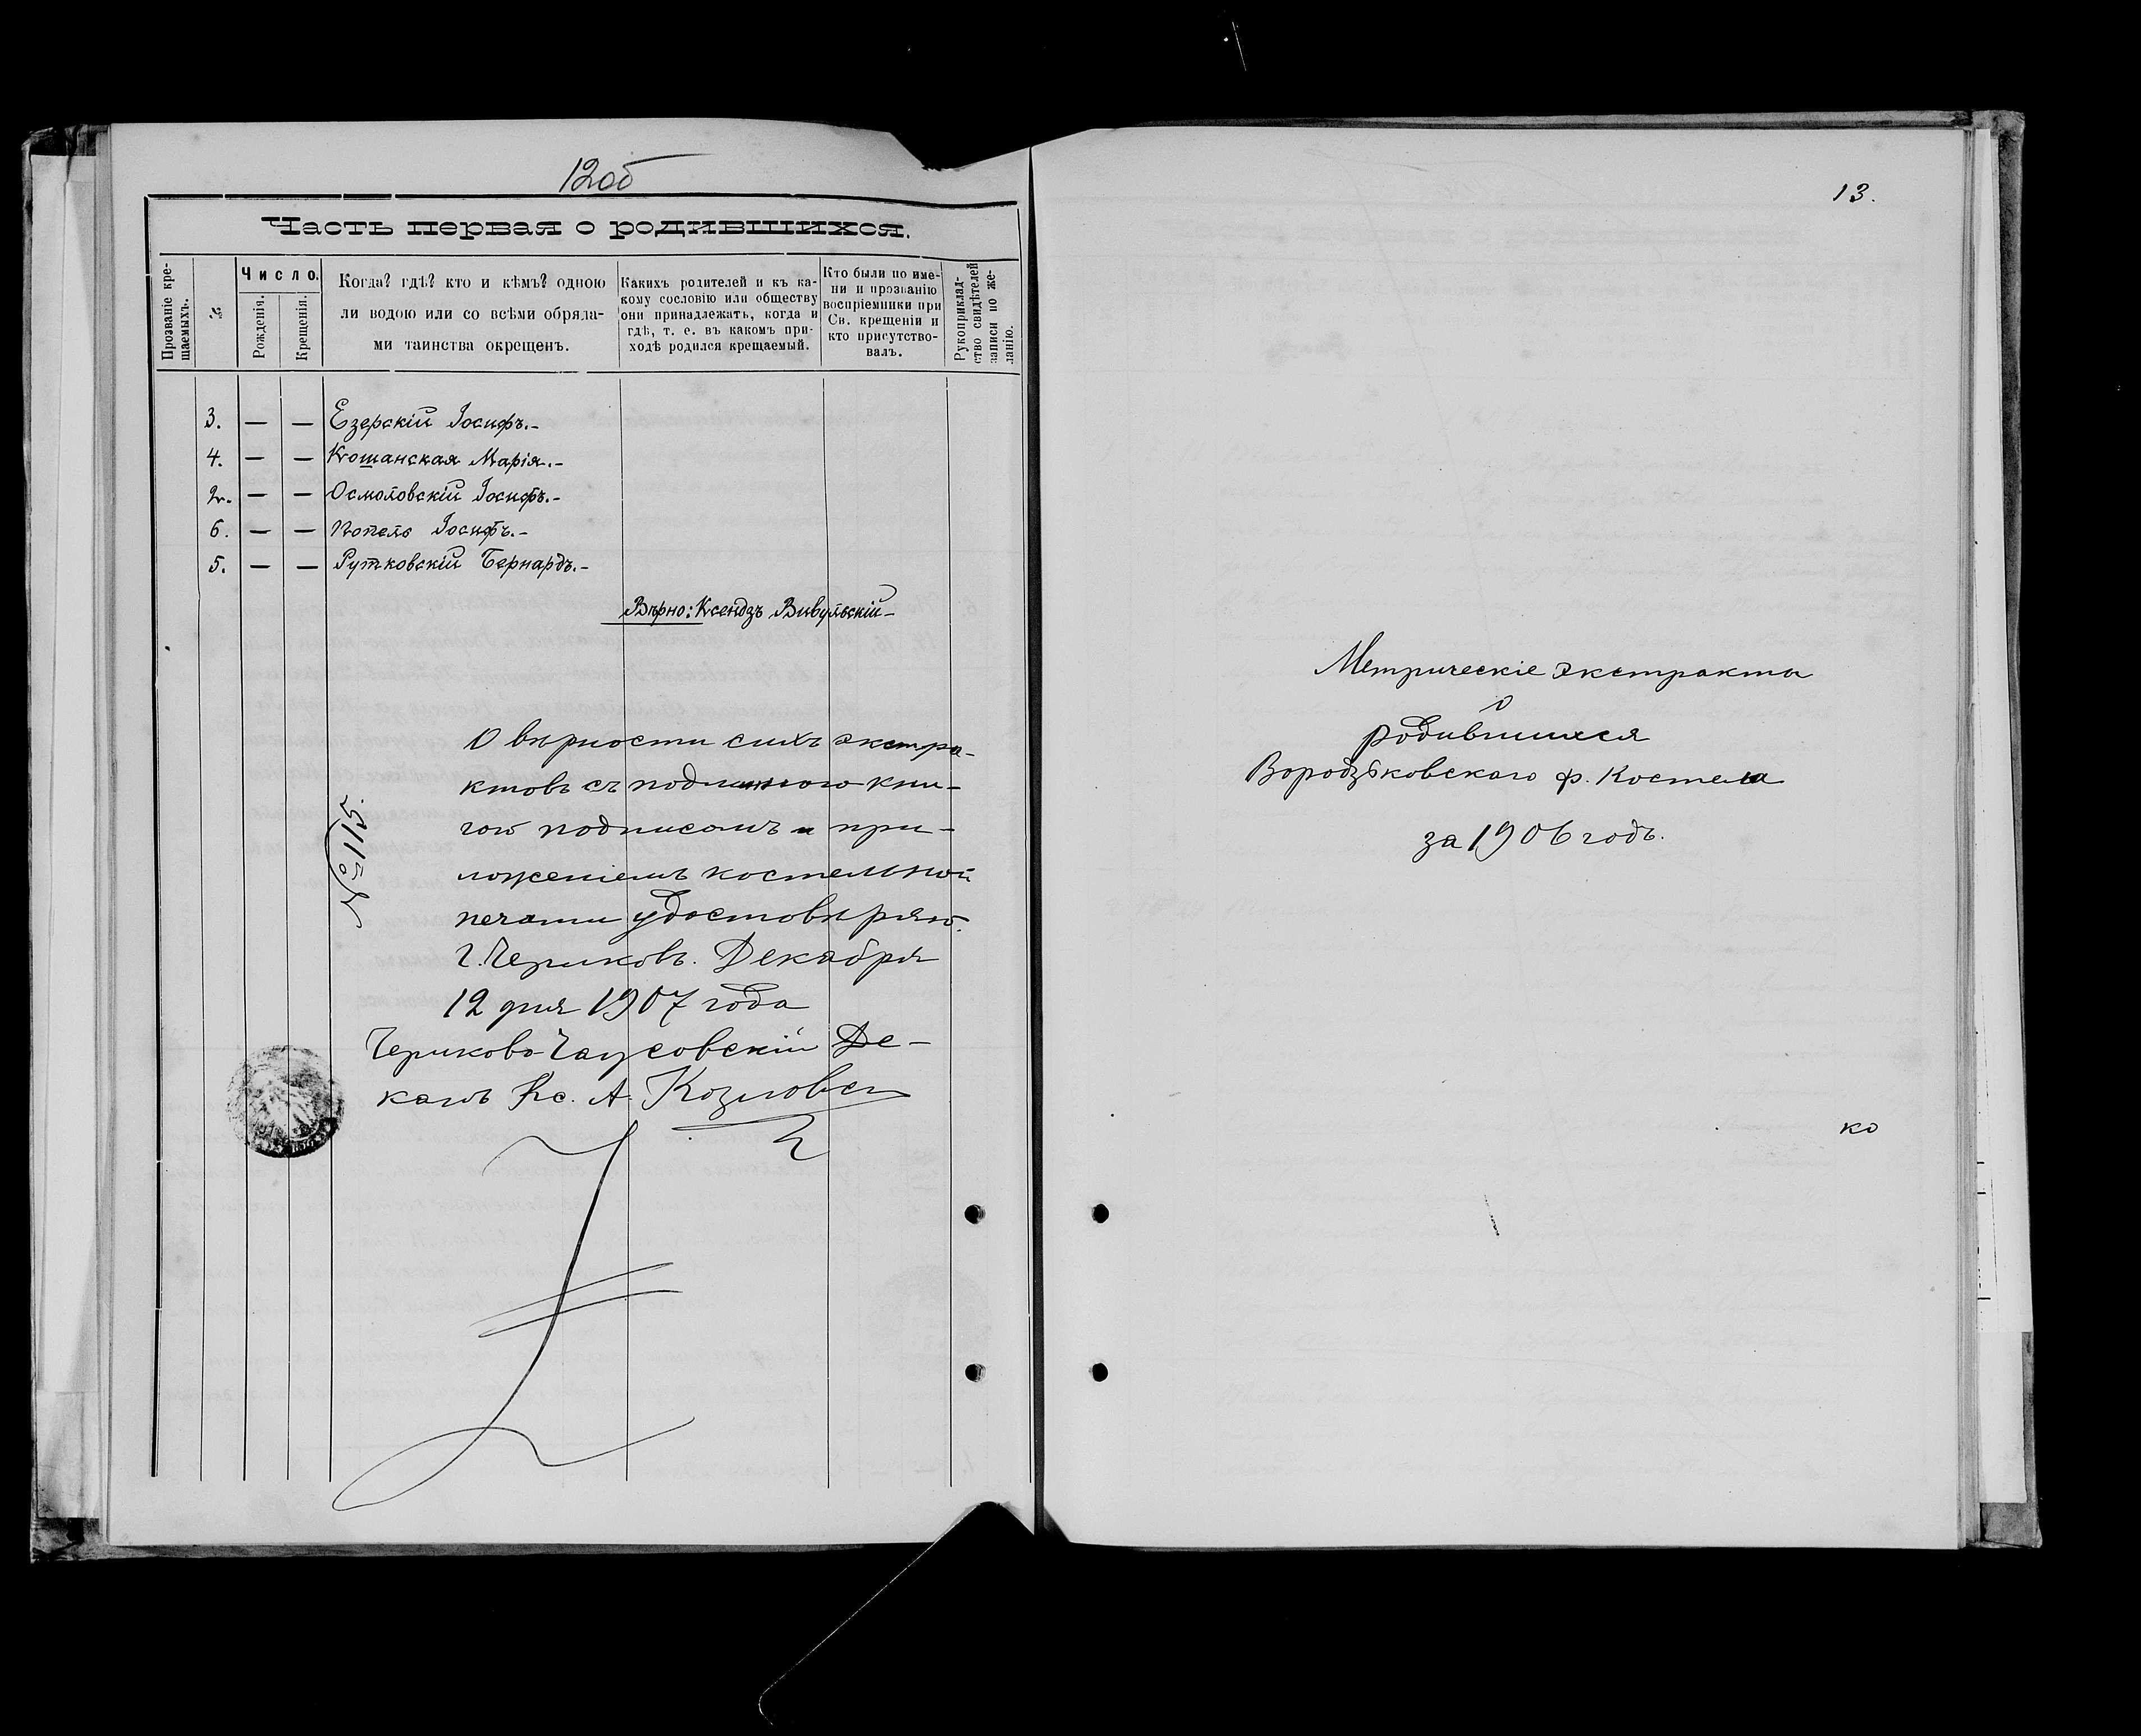 12об
Часть первая о родившихся.
Прозваніе кре-
щаемыхъ.
№
Число.
Рожденія.
Крещенія.
Когда? гдѣ? кто и кѣмъ? одною
ли водою или со всѣми обряда-
ми таинства окрещенъ.
Какихъ родителей и къ ка-
кому сословію или обществу
они принадлежатъ, когда и
гдѣ, т. е. въ какомъ при-
ходѣ родился крещаемый.
Кто были по име-
ни и прозванію
воспріемники при
Св. крещеніи и
кто присутство-
валъ.
Рукоприклад-
ство свидѣтелей
записи по же-
ланію.
3. — — Езерскій Іосифъ.-
4. — — Кошанская Марія.-
2. — — Осмоловскій Іосифъ.-
6. — — Попель Іосифъ.-
5. — — Рутковскій Бернардъ.-
Вѣрно: Ксендзъ Вивульскій-
№ 115.
О вѣрности сихъ экстра-
ктовъ съ подлинною кни-
гою подписомъ и при-
ложеніемъ костельной
печати удостовѣряю.
г. Чериковъ. Декабря
12 дня 1907 года
Чериково-Чаусовскій Де-
канъ Кс. А. Козловск
13.
Метрическіе экстракты
о
родившихся
Вородзьковскаго ф. Костела
за 1906 годъ.
ко